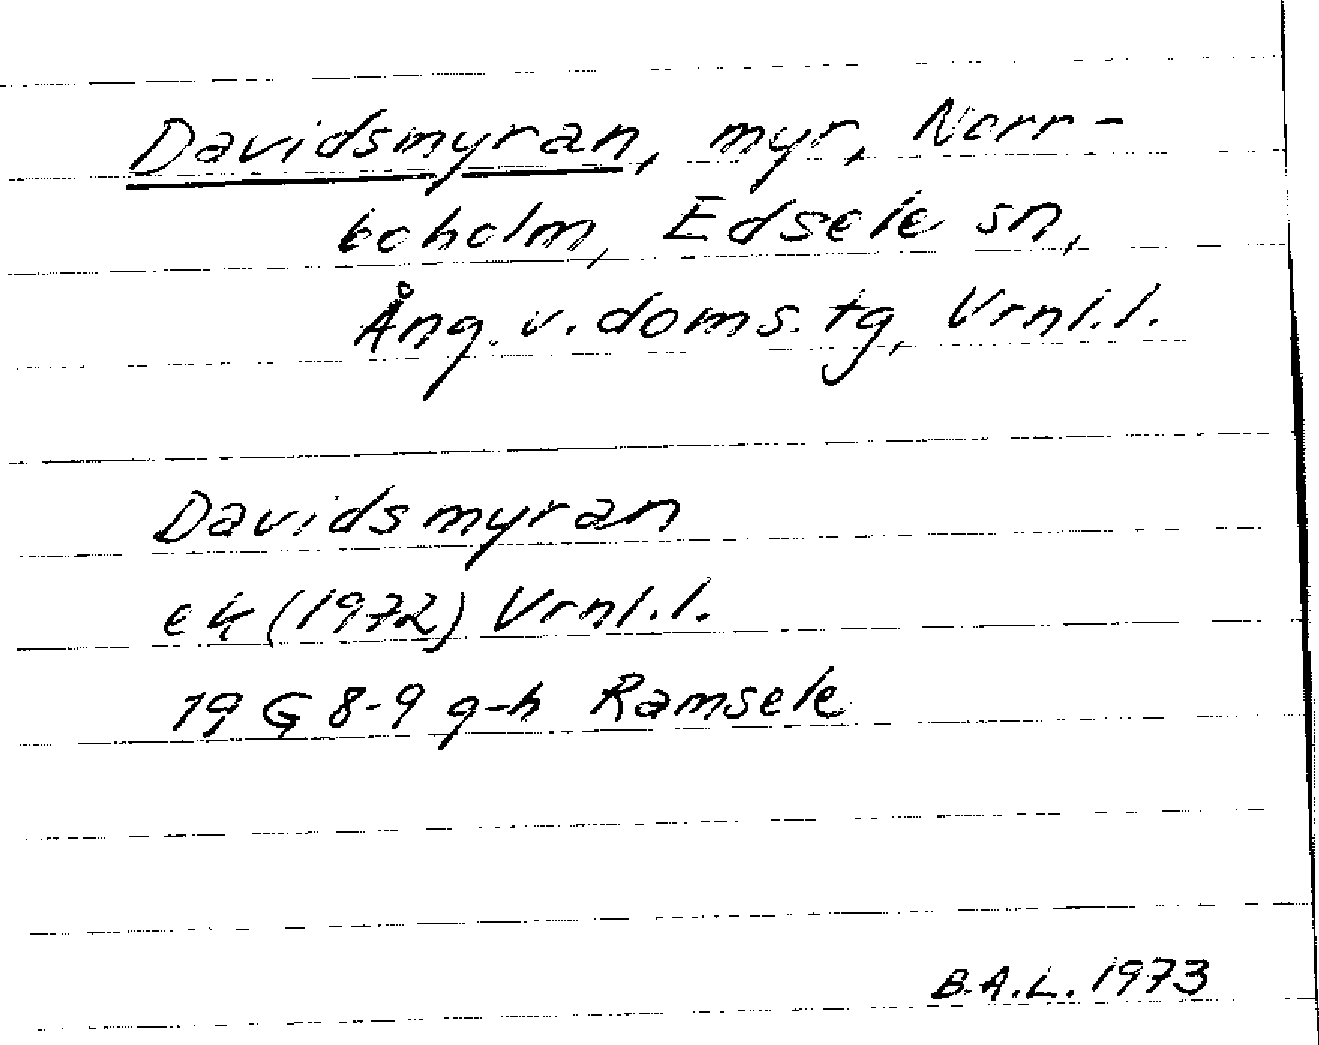 Davidsmyran, myr, Norr-
boholm, Edsele sn,
Ång. v. doms. tg, Vrnl.l.
Davidsmyran
ek (1972) Vrnl.l.
19 G 8-9 g-h Ramsele
B.A.L. 1973